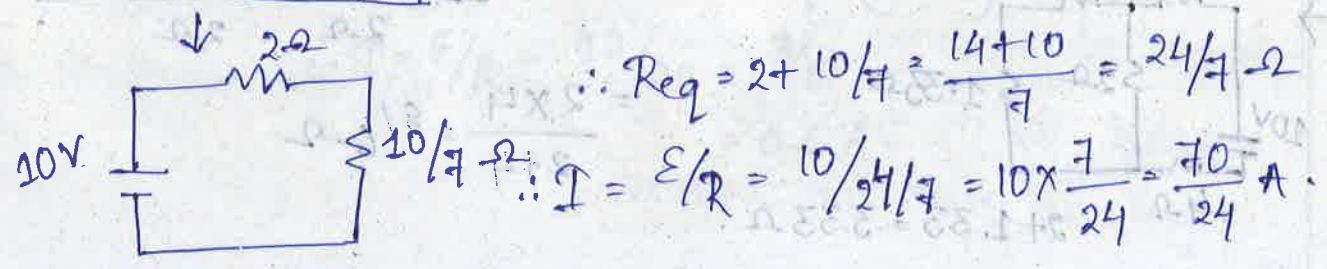 2Ω
10V
10/7 Ω
∴ Req = 2+ 10/7 = 14+10/7 = 24/7 Ω
∴ I = Ɛ/R = 10/24/7 = 10×7/24 = 70/24 A.